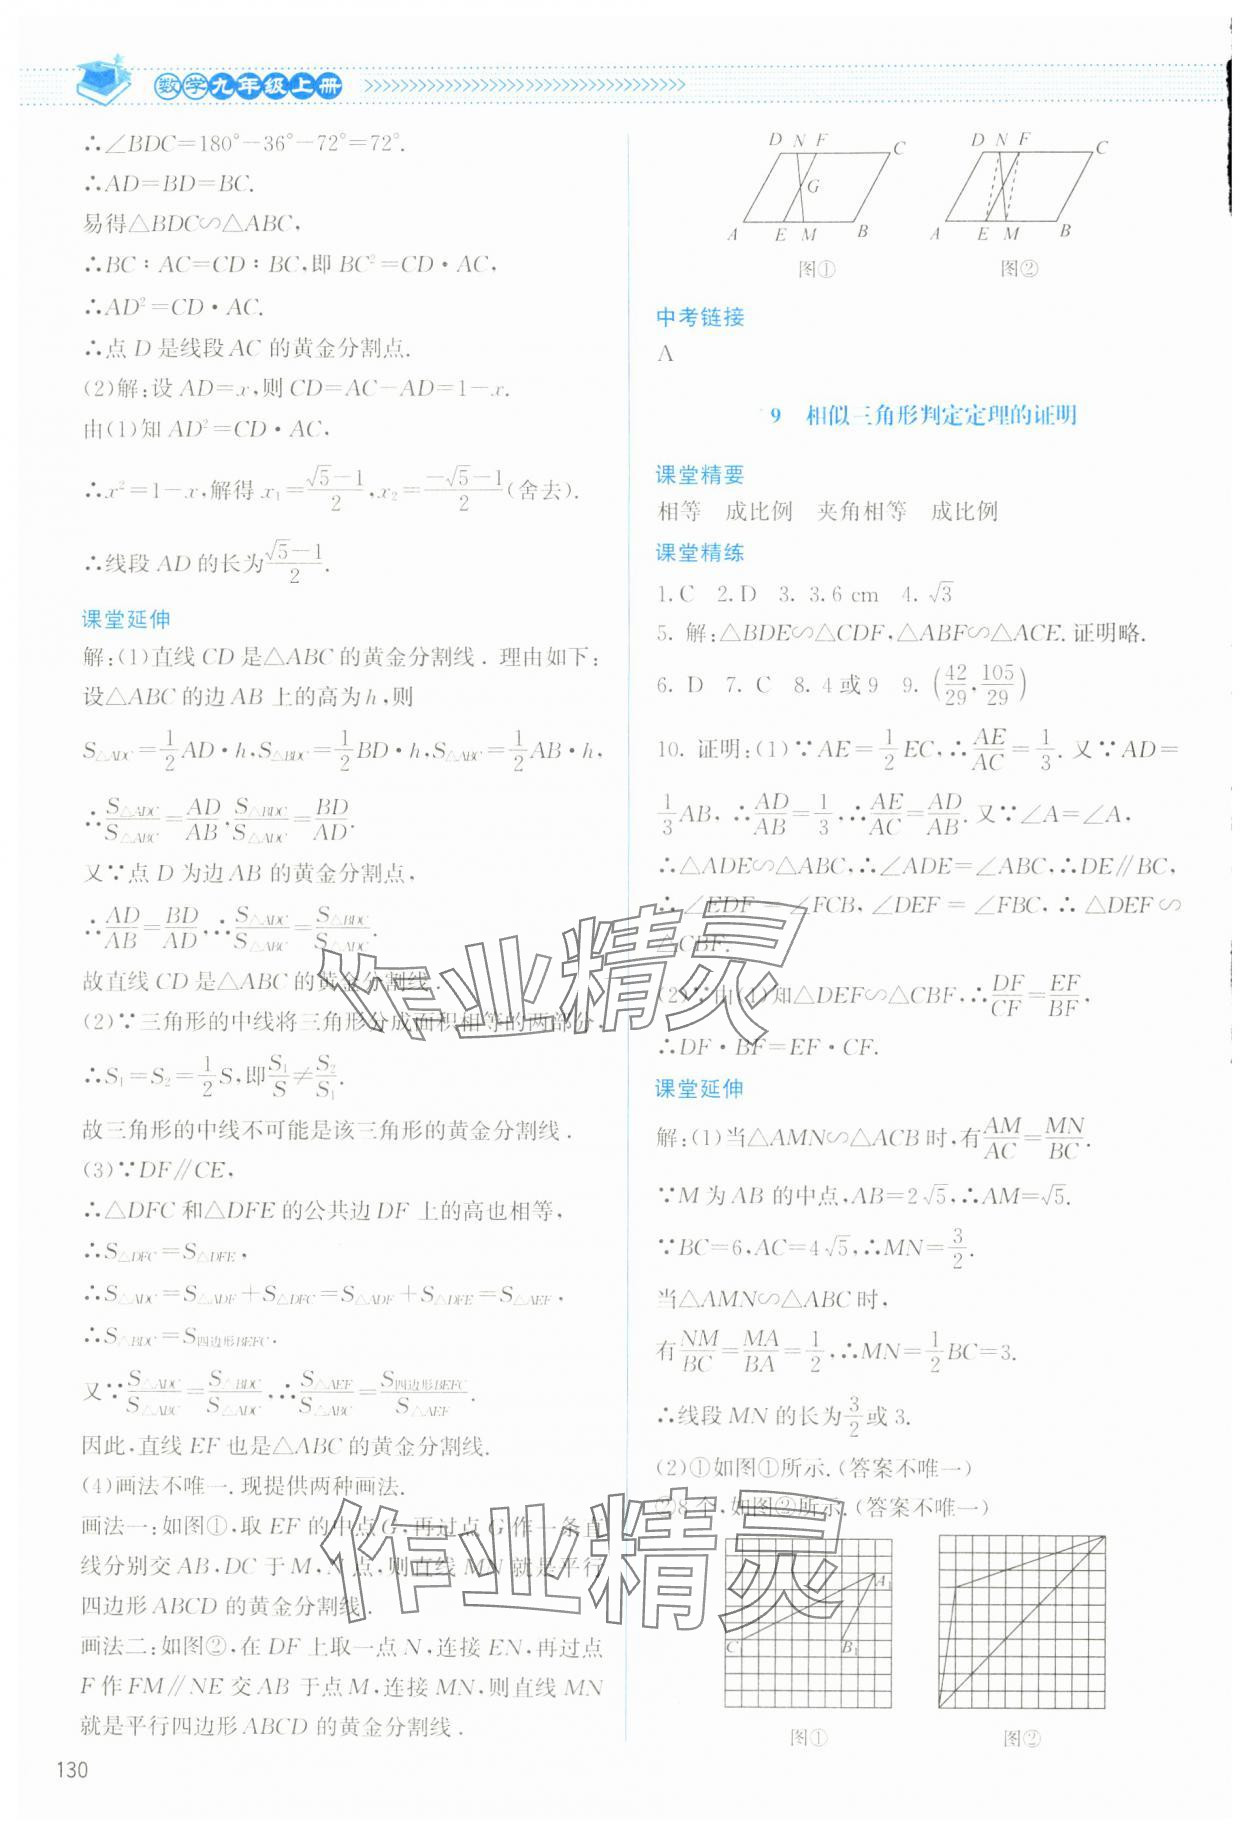 数学九年级上册
∴∠BDC=180°-36°-72°=72°.
∴AD=BD=BC.
易得△BDC∽△ABC,
∴BC∶AC=CD∶BC,即BC²=CD·AC,
∴AD²=CD·AC.
∴点 D 是线段 AC 的黄金分割点.
(2)解:设 AD=x,则 CD=AC-AD=1-x.
由(1)知 AD²=CD·AC,
∴x²=1-x,解得 x₁=(√5-1)/2,x₂=(-√5-1)/2(舍去).
∴线段 AD 的长为(√5-1)/2.
课堂延伸
解:(1)直线 CD 是△ABC 的黄金分割线.理由如下:
设△ABC 的边 AB 上的高为 h,则
S△ADC=1/2AD·h,S△BDC=1/2BD·h,S△ABC=1/2AB·h,
∴S△ADC/S△ABC=AD/AB,S△BDC/S△ADC=BD/AD.
又∵点 D 为边 AB 的黄金分割点,
∴AD/AB=BD/AD,∴S△ADC/S△ABC=S△BDC/S△ADC.
故直线 CD 是△ABC 的黄金分割线.
(2)∵三角形的中线将三角形分成面积相等的两部分,
∴S₁=S₂=1/2S,即S₁/S≠S₂/S₁.
故三角形的中线不可能是该三角形的黄金分割线.
(3)∵DF∥CE,
∴△DFC 和△DFE 的公共边 DF 上的高也相等,
∴S△DFC=S△DFE,
∴S△ADC=S△ADF+S△DFC=S△ADF+S△DFE=S△AEF,
∴S△BDC=S四边形BEFC.
又∵S△ADC/S△ABC=S△BDC/S△ADC,∴S△AEF/S△ABC=S四边形BEFC/S△AEF.
因此,直线 EF 也是△ABC 的黄金分割线.
(4)画法不唯一.现提供两种画法.
画法一:如图①,取 EF 的中点 G,再过点 G 作一条直
线分别交 AB,DC 于 M,N 点,则直线 MN 就是平行
四边形 ABCD 的黄金分割线.
画法二:如图②,在 DF 上取一点 N,连接 EN,再过点
F 作 FM∥NE 交 AB 于点 M,连接 MN,则直线 MN
就是平行四边形 ABCD 的黄金分割线.
130
D N F C
G
A E M B
图①
D N F C
A E M B
图②
中考链接
A
9 相似三角形判定定理的证明
课堂精要
相等 成比例 夹角相等 成比例
课堂精练
1. C 2. D 3. 3.6 cm 4. √3
5. 解:△BDE∽△CDF,△ABF∽△ACE.证明略.
6. D 7. C 8. 4或9 9. (42/29,105/29)
10. 证明:(1)∵AE=1/2EC,∴AE/AC=1/3.又∵AD=
1/3AB,∴AD/AB=1/3,∴AE/AC=AD/AB.又∵∠A=∠A,
∴△ADE∽△ABC,∴∠ADE=∠ABC,∴DE∥BC,
∴∠EDF=∠FCB,∠DEF=∠FBC,∴△DEF∽
△CBF.
(2)∵由(1)知△DEF∽△CBF,∴DF/CF=EF/BF,
∴DF·BF=EF·CF.
课堂延伸
解:(1)当△AMN∽△ACB 时,有AM/AC=MN/BC.
∵M 为 AB 的中点,AB=2√5,∴AM=√5.
∵BC=6,AC=4√5,∴MN=3/2.
当△AMN∽△ABC 时,
有NM/BC=MA/BA=1/2,∴MN=1/2BC=3.
∴线段 MN 的长为3/2或3.
(2)①如图①所示.(答案不唯一)
②8 个,如图②所示.(答案不唯一)
A₁
C₁
B₁
图①
图②
作业精灵
作业精灵